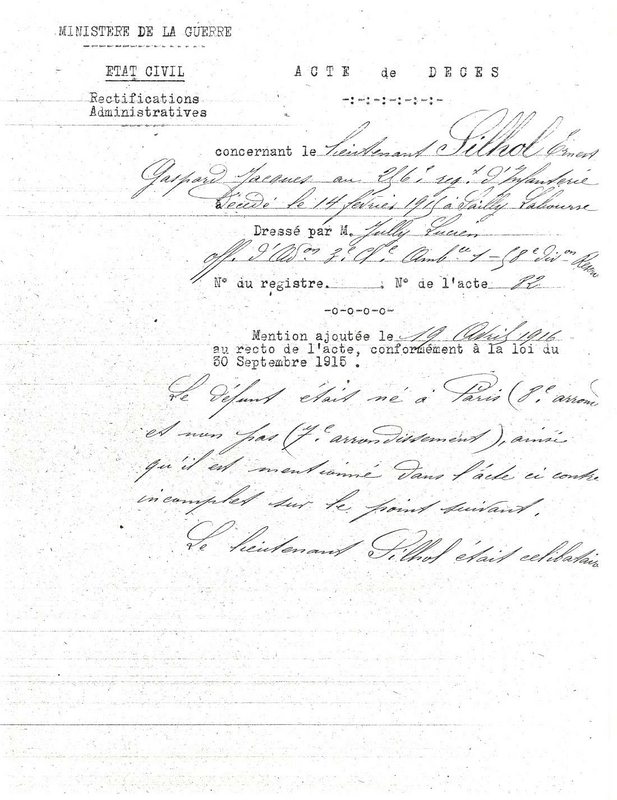 MINISTERE DE LA GUERRE
ETAT CIVIL
ACTE de DECES
Rectifications
Administratives
concernant le lieutenant Silhol Ernest
Gaspard Jacques au 256e reg.t d'Infanterie
décédé le 14 février 1915 à Sailly Labourse
Dressé par M. Jully Lucien
off. d'Adon 2e Cl.e Amb.ce 1 - 58e divon Rese
N° du registre. . N° de l'acte 82
-o-o-o-o-
Mention ajoutée le 19 Avril 1916
au recto de l'acte, conformément à la loi du
30 Septembre 1915 .
Le défunt était né à Paris (8e arrond
et non pas (7e arrondissement), ainsi
qu'il est mentionné dans l'acte ci contre
incomplet sur le point suivant.
Le lieutenant Silhol était celibataire